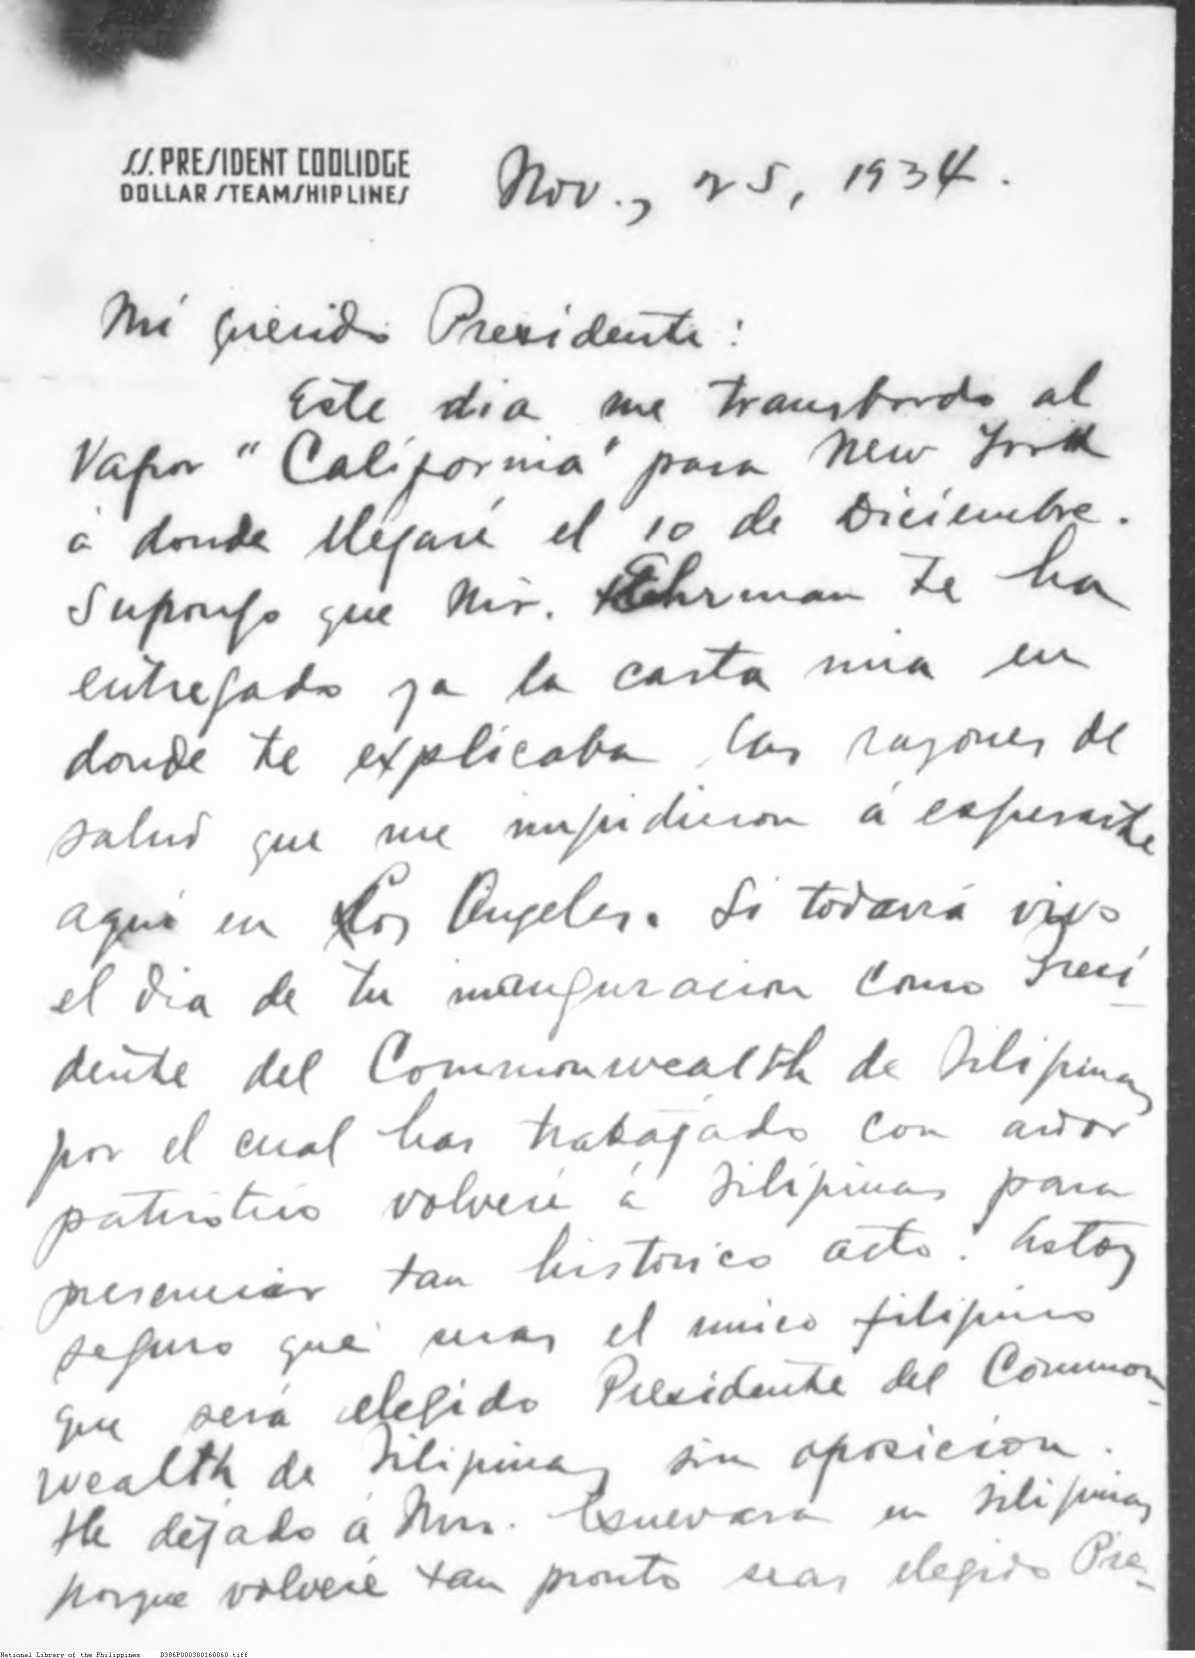 S.S. PRESIDENT COOLIDGE
DOLLAR STEAMSHIP LINES
Nov., 25, 1934.
Mi querido Presidente:
Este dia me transbordo al
Vapor "California" para New York
á donde llegaré el 10 de Diciembre.
Supongo que Mr. Ehrman te ha
entregado ya la carta mia en
donde te explicaba las razones de
salud que me impidieron á esperarte
aquí en Los Angeles. Si todavía vivo
el dia de tu inauguracion como Presi-
dente del Commonwealth de Filipinas
por el cual has trabajado con ardor
patriotico volveré á Filipinas para
presenciar tan historico acto. Estoy
seguro que seras el unico filipino
que será elegido Presidente del Common-
wealth de Filipinas sin oposicion.
He dejado á Mrs. Guevara en Filipinas
porque volveré tan pronto seas elegido Pre-
National Library of the Philippines D386P000300160060.tiff